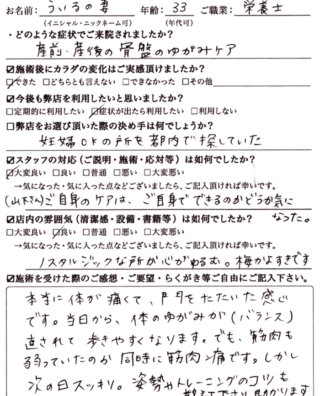 お名前: ういろの妻 年齢: 33 ご職業: 栄養士
(イニシャル・ニックネーム可) (年代可)
・どのような症状でご来院されましたか?
産前・産後の骨盤のゆがみケア
☑施術後にカラダの変化はご実感頂けましたか?
☑できた □どちらとも言えない □できなかった □その他
☑今後も弊店を利用したいと思いましたか?
□定期的に利用したい ☑症状が出たら利用したい □利用しない
□弊店をお選び頂いた際の決め手は何でしょうか?
妊婦OKの所を都内で探していた
☑スタッフの対応(ご説明・施術・応対等)は如何でしたか?
☑大変良い □良い □普通 □悪い □大変悪い
→気になった・気に入った点などございましたら、ご記入頂ければ幸いです。
(山本さん)ご自身のケアは、ご自身でできるのかどうか気に
なった。
☑店内の雰囲気(清潔感・設備・書籍等)は如何でしたか?
□大変良い ☑良い □普通 □悪い □大変悪い
→気になった・気に入った点などございましたら、ご記入頂ければ幸いです。
ノスタルジックな所が心がゆるむ。梅かよすきです
☑施術を受けた際のご感想・ご要望・らくがき等ご自由にご記入下さい。
本当に体が痛くて、門をたたいた感じ
です。当日から、体のゆがみが(バランス)
直されて歩きやすくなります。でも、筋肉も
弱っていたのか同時に筋肉痛です。しかし
次の日スッキリ。姿勢やトレーニングのコツも